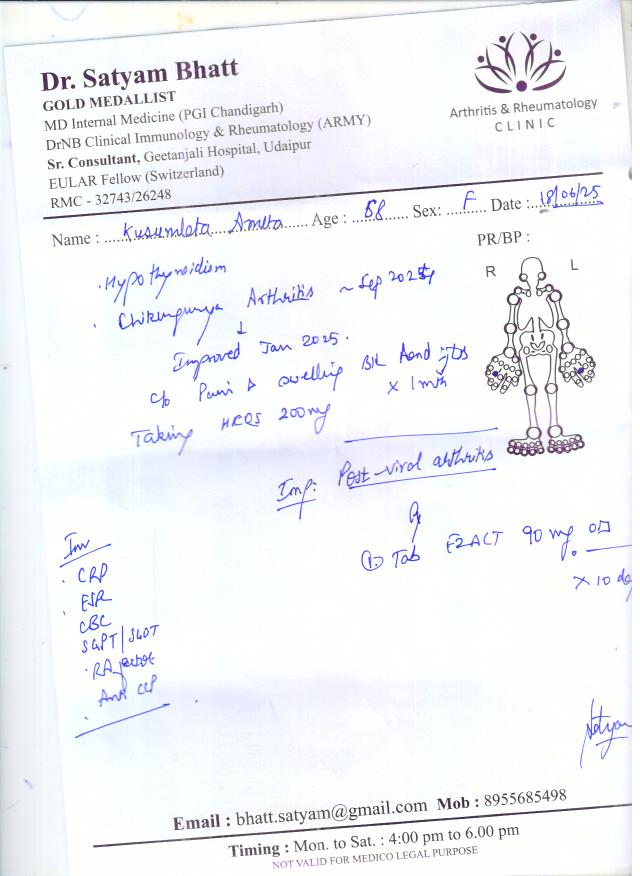 Dr. Satyam Bhatt
GOLD MEDALLIST
MD Internal Medicine (PGI Chandigarh)
DrNB Clinical Immunology & Rheumatology (ARMY)
Sr. Consultant, Geetanjali Hospital, Udaipur
EULAR Fellow (Switzerland)
RMC - 32743/26248
Arthritis & Rheumatology
CLINIC
Name : Kusumlata Ameta Age : 58 Sex: F Date : 18/06/25
PR/BP :
R L
· Hypothyroidism
· Chikungunya Arthritis ~ Sep 2024
↓
Improved Jan 2025.
c/o Pain & swelling B/L Hand jts
x 1 mth
Taking HCQS 200 mg
Imp: Post-viral arthritis
Rx
① Tab EZACT 90 mg OD
x 10 da
Inv
· CRP
· ESR
CBC
SGPT/SGOT
· RA factor
Anti CCP
Satyam
Email : bhatt.satyam@gmail.com Mob : 8955685498
Timing : Mon. to Sat. : 4:00 pm to 6.00 pm
NOT VALID FOR MEDICO LEGAL PURPOSE